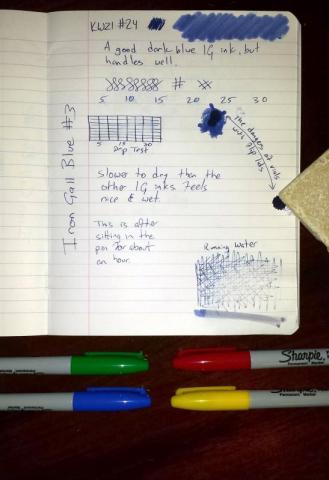 KWZI #24
A good dark blue IG ink, but
handles well.
5 10 15 20 25 30
5 15 20
Dip Test
The dangers of vials
with flip lids
Slower to dry than the
other IG inks. Feels
nice & wet.
This is after
sitting in the
pen for about
an hour.
Running Water
Iron Gall Blue #3
Sharpie
Permanent Marker
Permanent Marker